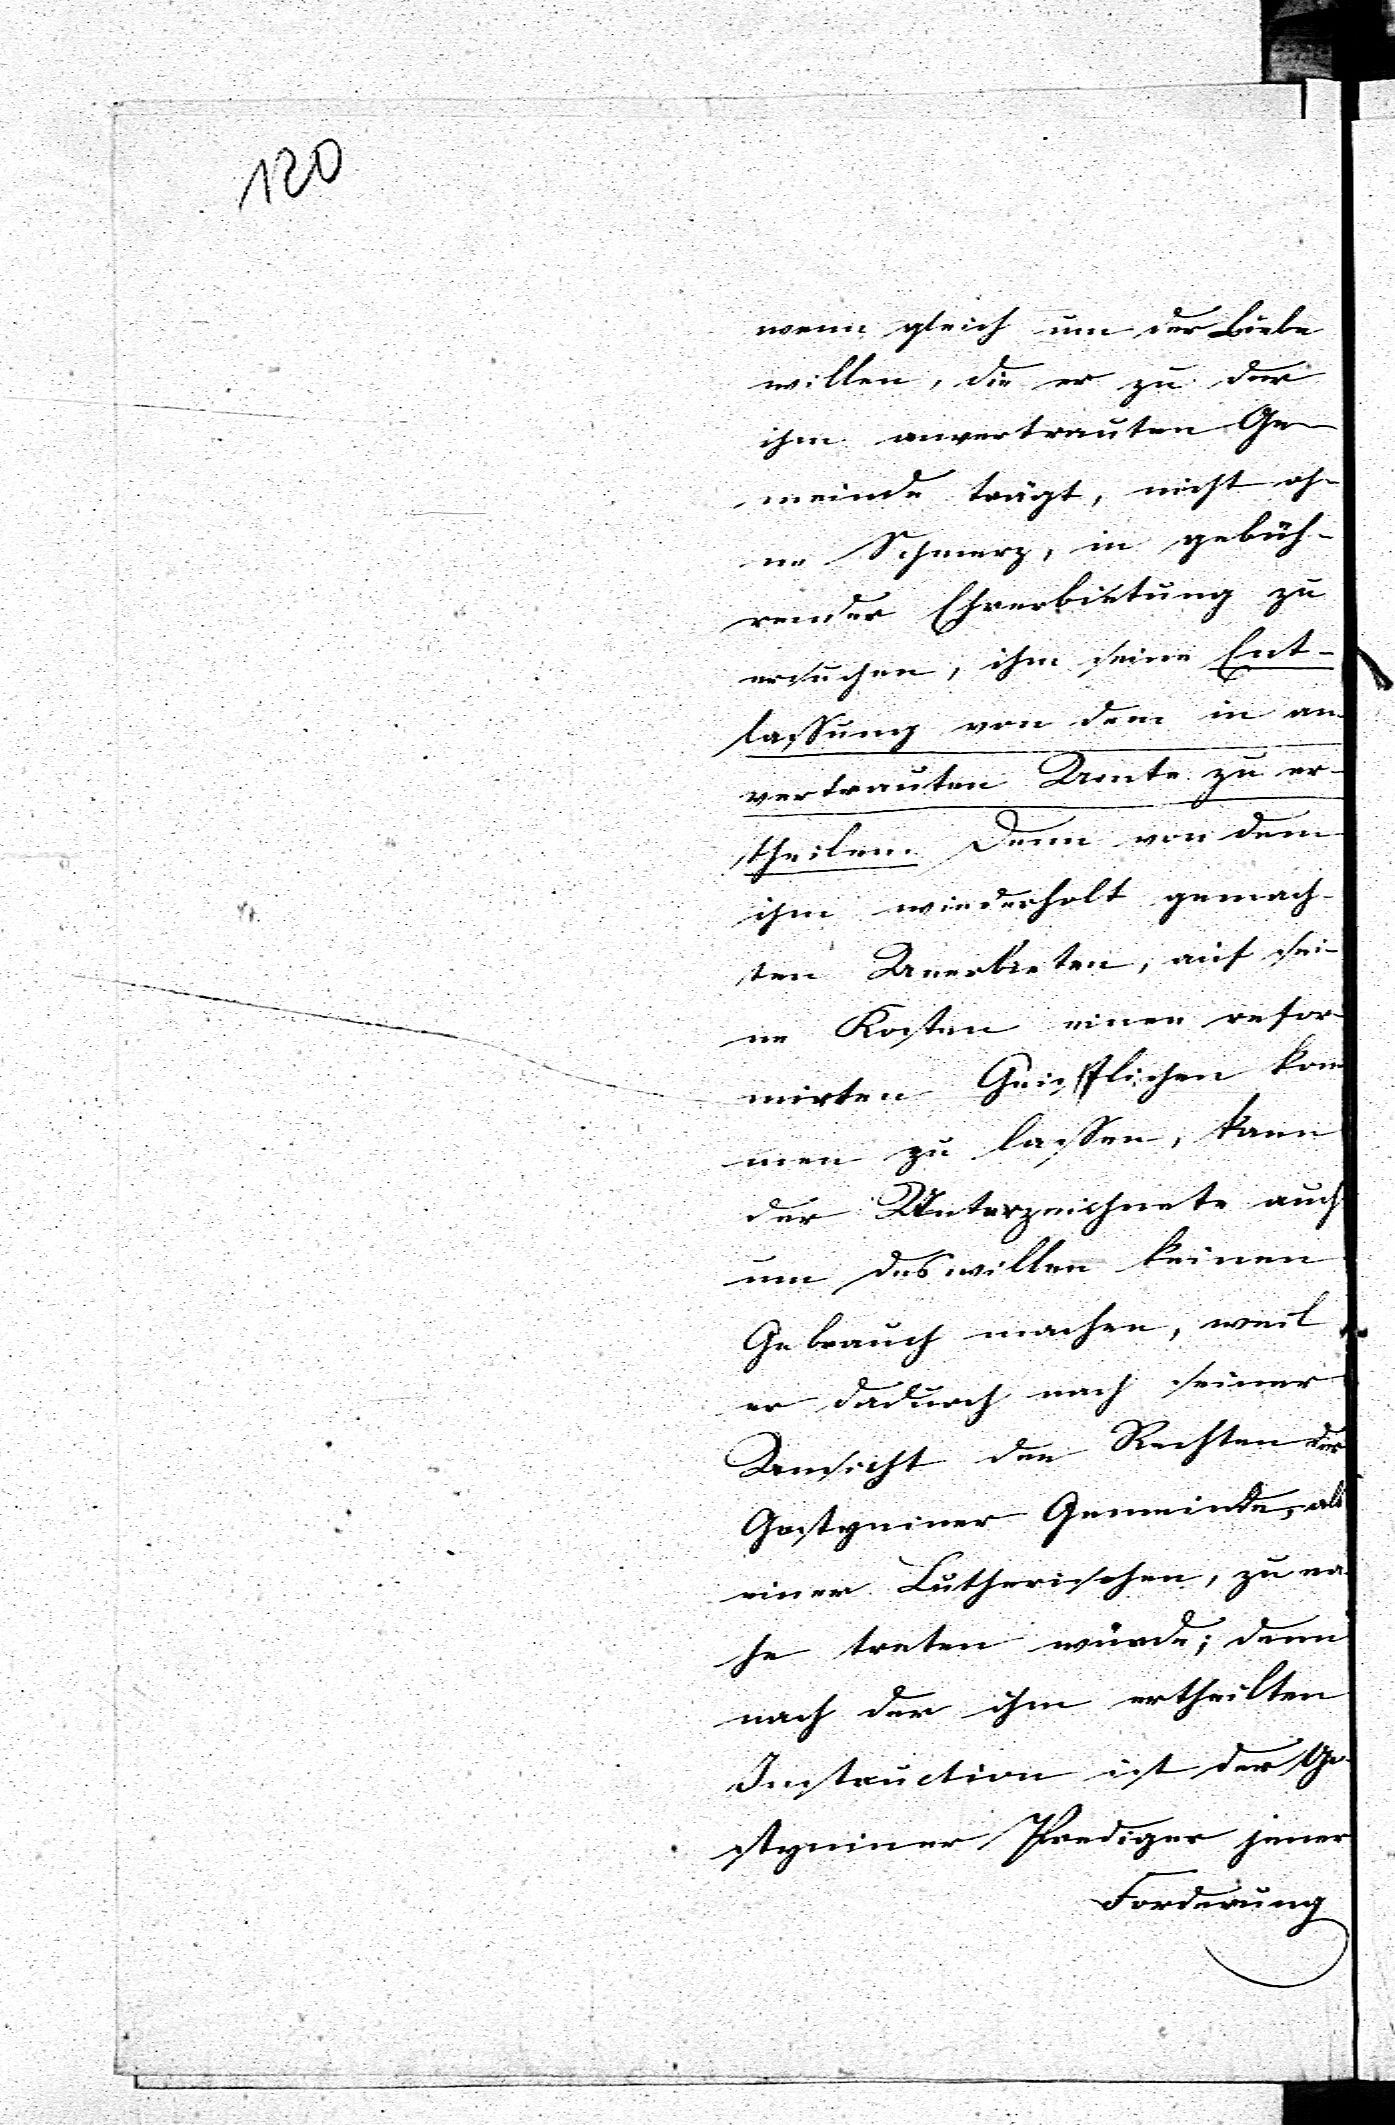 120
wenn gleich um der Liebe
willen, die er zu der
ihm anvertrauten Ge-
meinde trägt, nicht oh-
ne Schmerz, in gebüh-
render Ehrerbietung zu
ersuchen, ihm seine Ent-
lassung von dem in an-
vertrauten Amte zu er-
theilen. Denn von dem
ihm wiederholt gemach-
ten Anerbieten, auf sei-
ne Kosten einen refor-
mirten Geistlichen kom
men zu lassen, kann
der Unterzeichnete auch
um deswillen keinen
Gebrauch machen, weil
er dadurch nach seiner
Ansicht den Rechten der
Gostyniner Gemeinde, als
einer Lutherischen, zu na-
he treten würde; denn
nach der ihm ertheilten
Instruction ist der Go-
styniner Prediger jener
Forderung